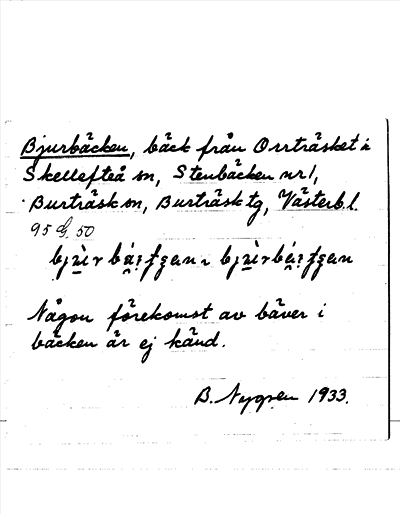 Bjurbäcken, bäck från Orrträsket i
Skellefteå sn, Stenbäcken nr 1,
Burträsk sn, Burträsk tg, Västerb. l.
95 G. 50
Någon förekomst av bäver i
bäcken är ej känd.
B. Nygren 1933.